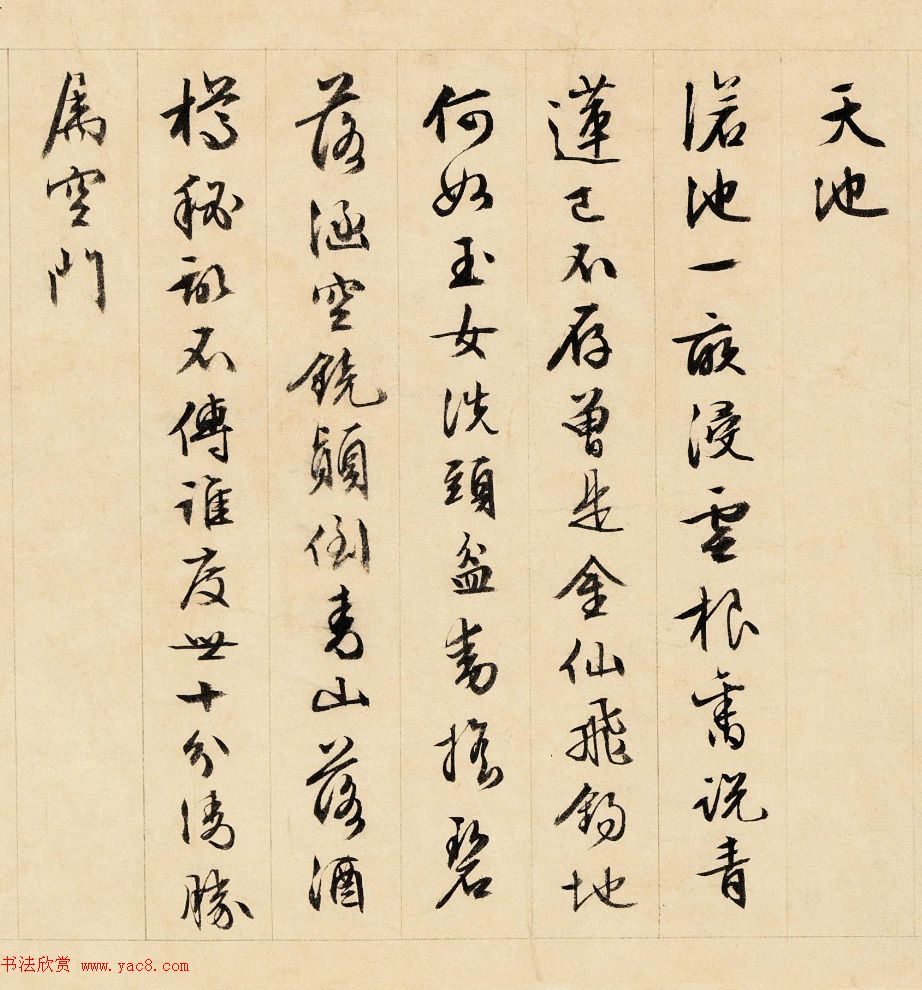 天池
池一畝浸雲根舊説青
蓮已不存曾是金仙飛錫地
何如玉女洗頭盆動搖碧
落涵空鏡顛倒青山落酒
樽秘訣不傳誰度世十分清勝
属空門
书法欣赏 www.yac8.com